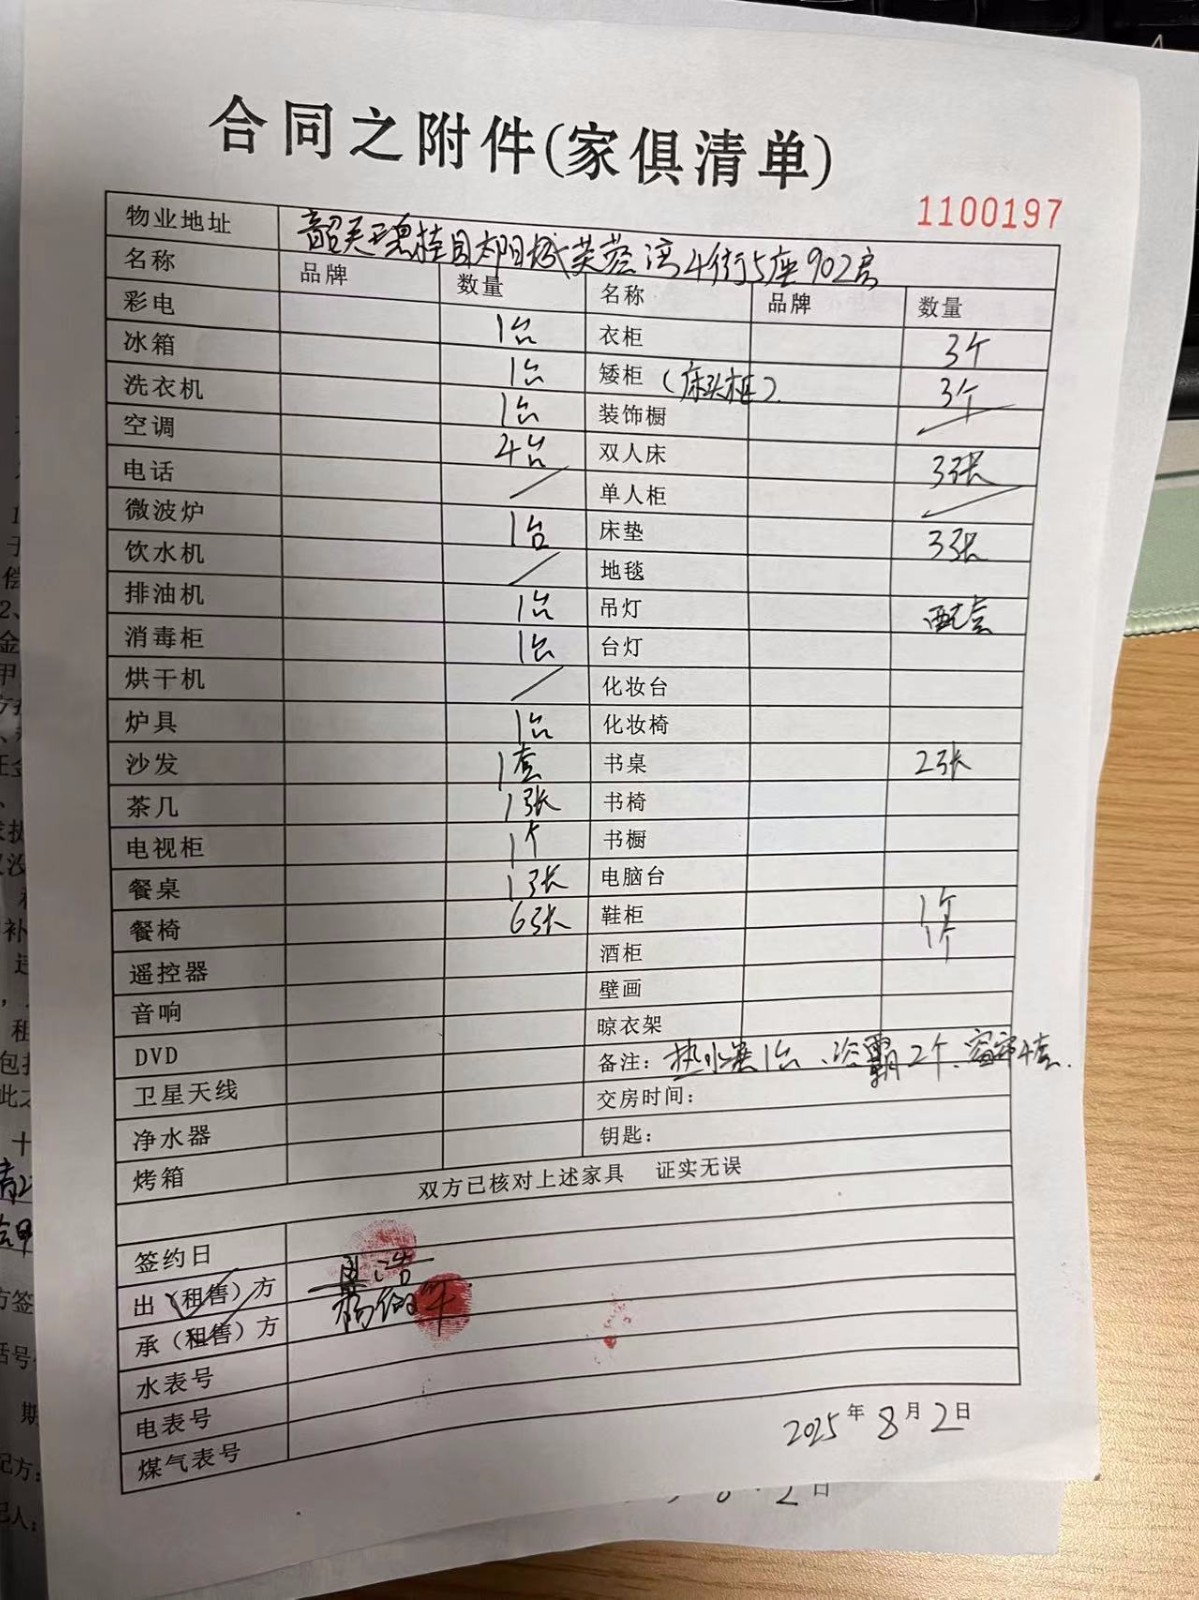 合同之附件(家俱清单)
1100197
物业地址 韶关碧桂园太阳城芙蓉湾4街5座902房
名称 品牌 数量 名称 品牌 数量
彩电 1台 衣柜 3个
冰箱 1台 矮柜 (床头柜) 3个
洗衣机 1台 装饰橱 /
空调 4台 双人床 3张
电话 / 单人柜 /
微波炉 1台 床垫 3张
饮水机 / 地毯
排油机 1台 吊灯 配套
消毒柜 1台 台灯
烘干机 / 化妆台
炉具 1台 化妆椅
沙发 1套 书桌 2张
茶几 1张 书椅
电视柜 1个 书橱
餐桌 1张 电脑台
餐椅 6张 鞋柜 1个
遥控器 酒柜 1个
音响 壁画
DVD 晾衣架
卫星天线 备注: 热水器1台、浴霸2个、窗帘4套.
净水器 交房时间:
烤箱 钥匙:
双方已核对上述家具 证实无误
签约日
出(租售)方
承(租售)方
水表号
电表号
煤气表号
2025年8月2日